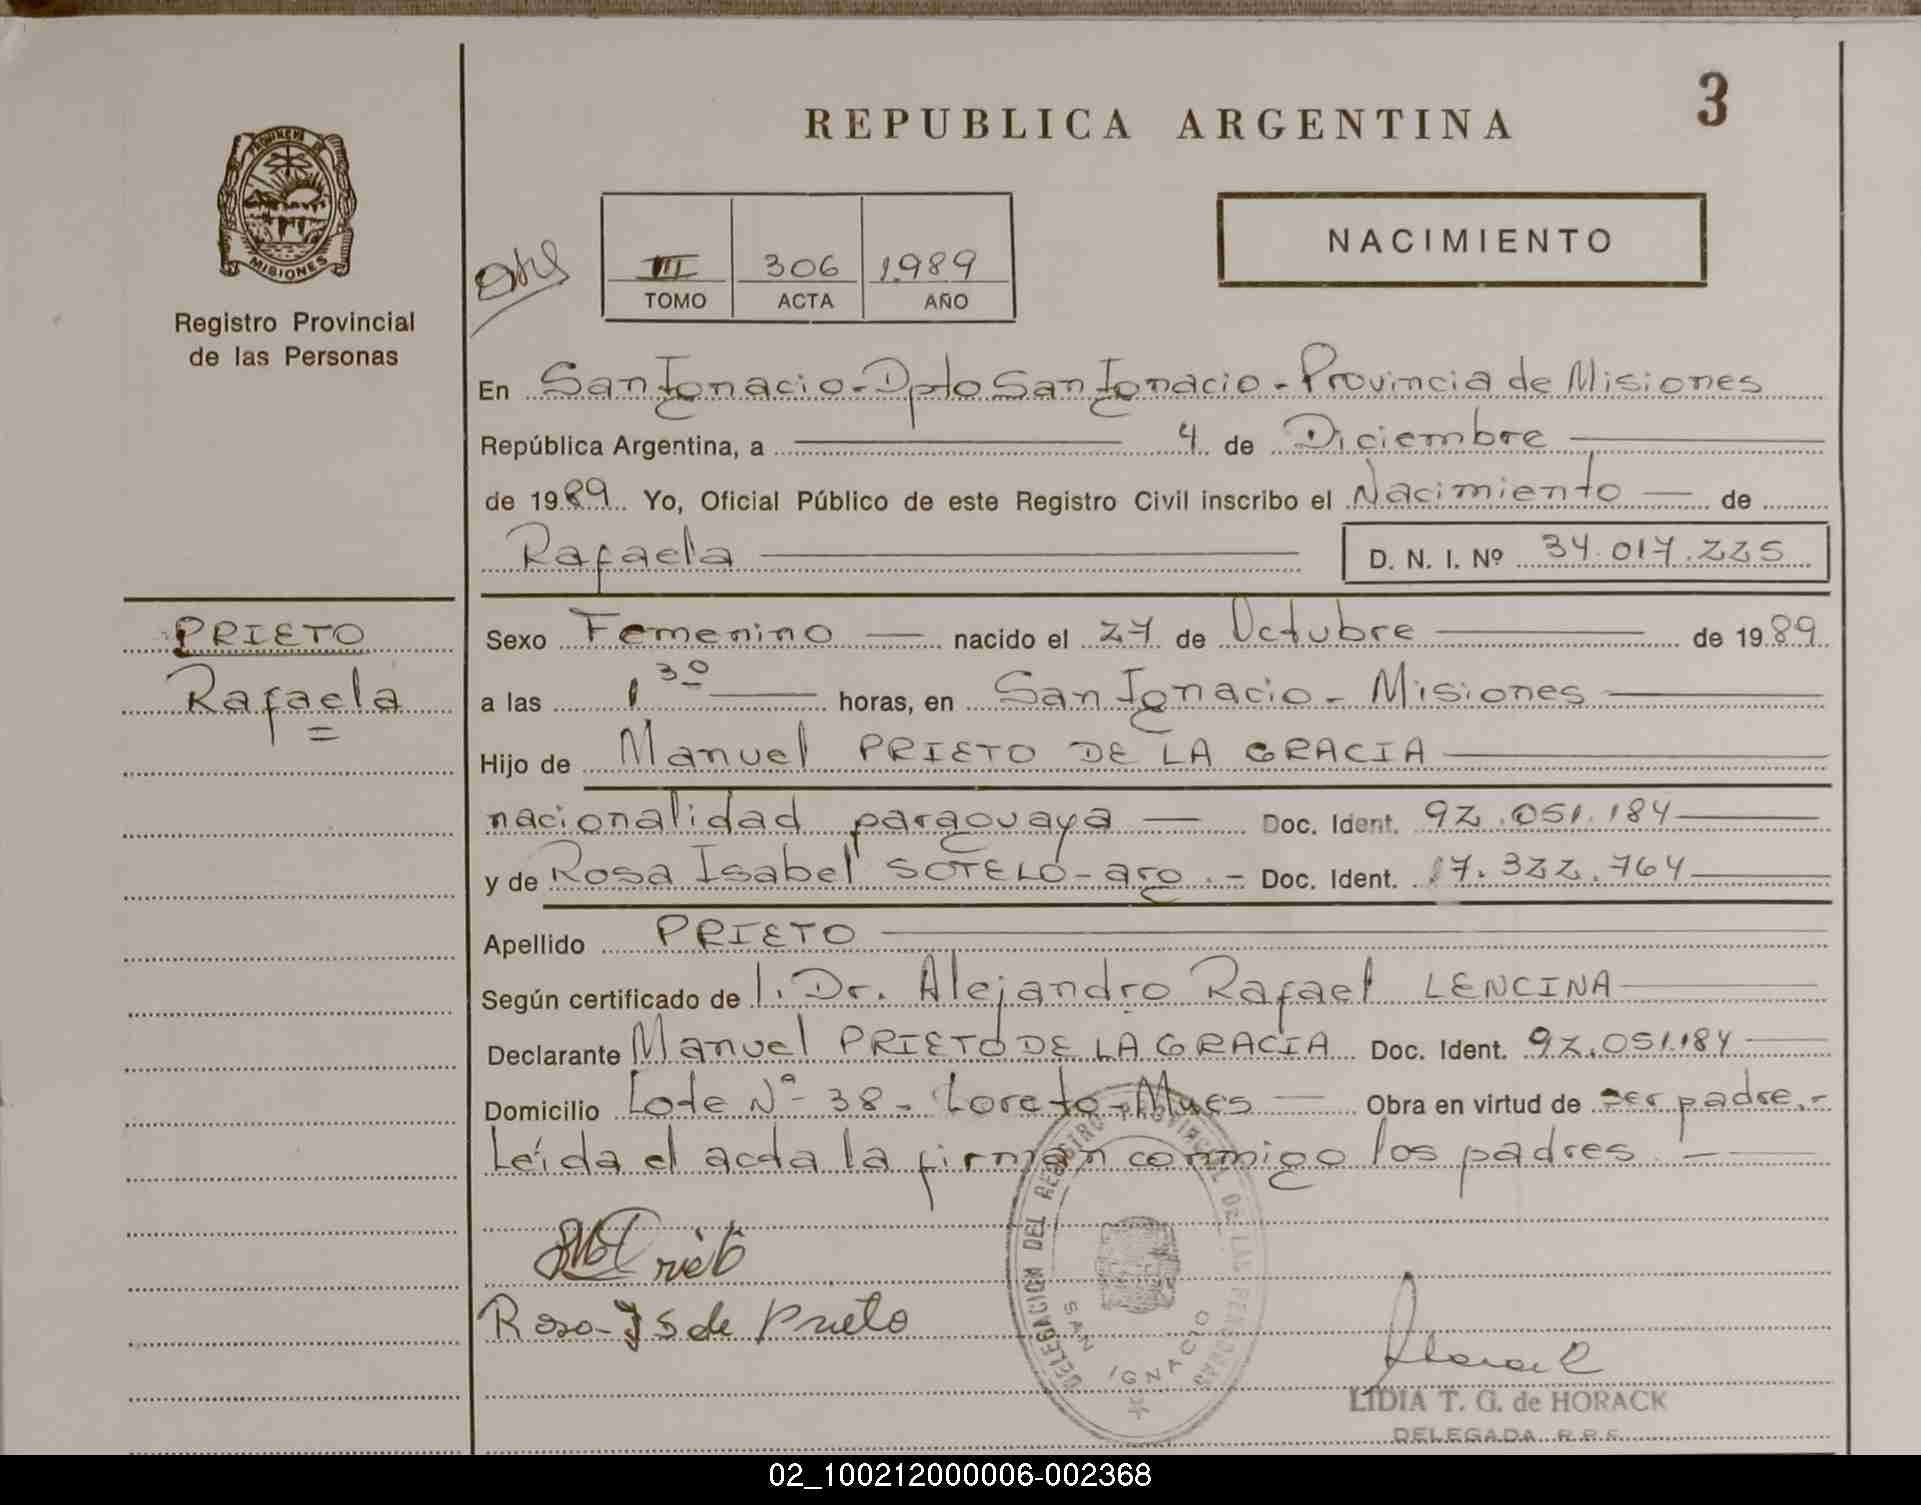 3
REPUBLICA ARGENTINA
PROVINCIA DE
MISIONES
Registro Provincial
de las Personas
III 306 1989
TOMO ACTA AÑO
NACIMIENTO
En San Ignacio - Dpto San Ignacio - Provincia de Misiones
República Argentina, a 4 de Diciembre
de 1989 Yo, Oficial Público de este Registro Civil inscribo el Nacimiento de
Rafaela D. N. I. Nº 34.017.225
PRIETO
Rafaela
Sexo Femenino nacido el 27 de Octubre de 1989
a las 1 30 horas, en San Ignacio - Misiones
Hijo de Manuel PRIETO DE LA GRACIA
nacionalidad paraguaya Doc. Ident. 92.051.184
y de Rosa Isabel SOTELO - arg. - Doc. Ident. 17.322.764
Apellido PRIETO
Según certificado de l. Dr. Alejandro Rafael LENCINA
Declarante Manuel PRIETO DE LA GRACIA Doc. Ident. 92.051.184
Domicilio Lote Nº 38 - Loreto - Mnes Obra en virtud de ser padre.-
Leída el acta la firman conmigo los padres.
Prieto
Rosa IS de Prieto
DELEGACION DEL REGISTRO PROVINCIAL DE LAS PERSONAS
SAN IGNACIO
LIDIA T. G. de HORACK
DELEGADA R.P.P.
02_100212000006-002368